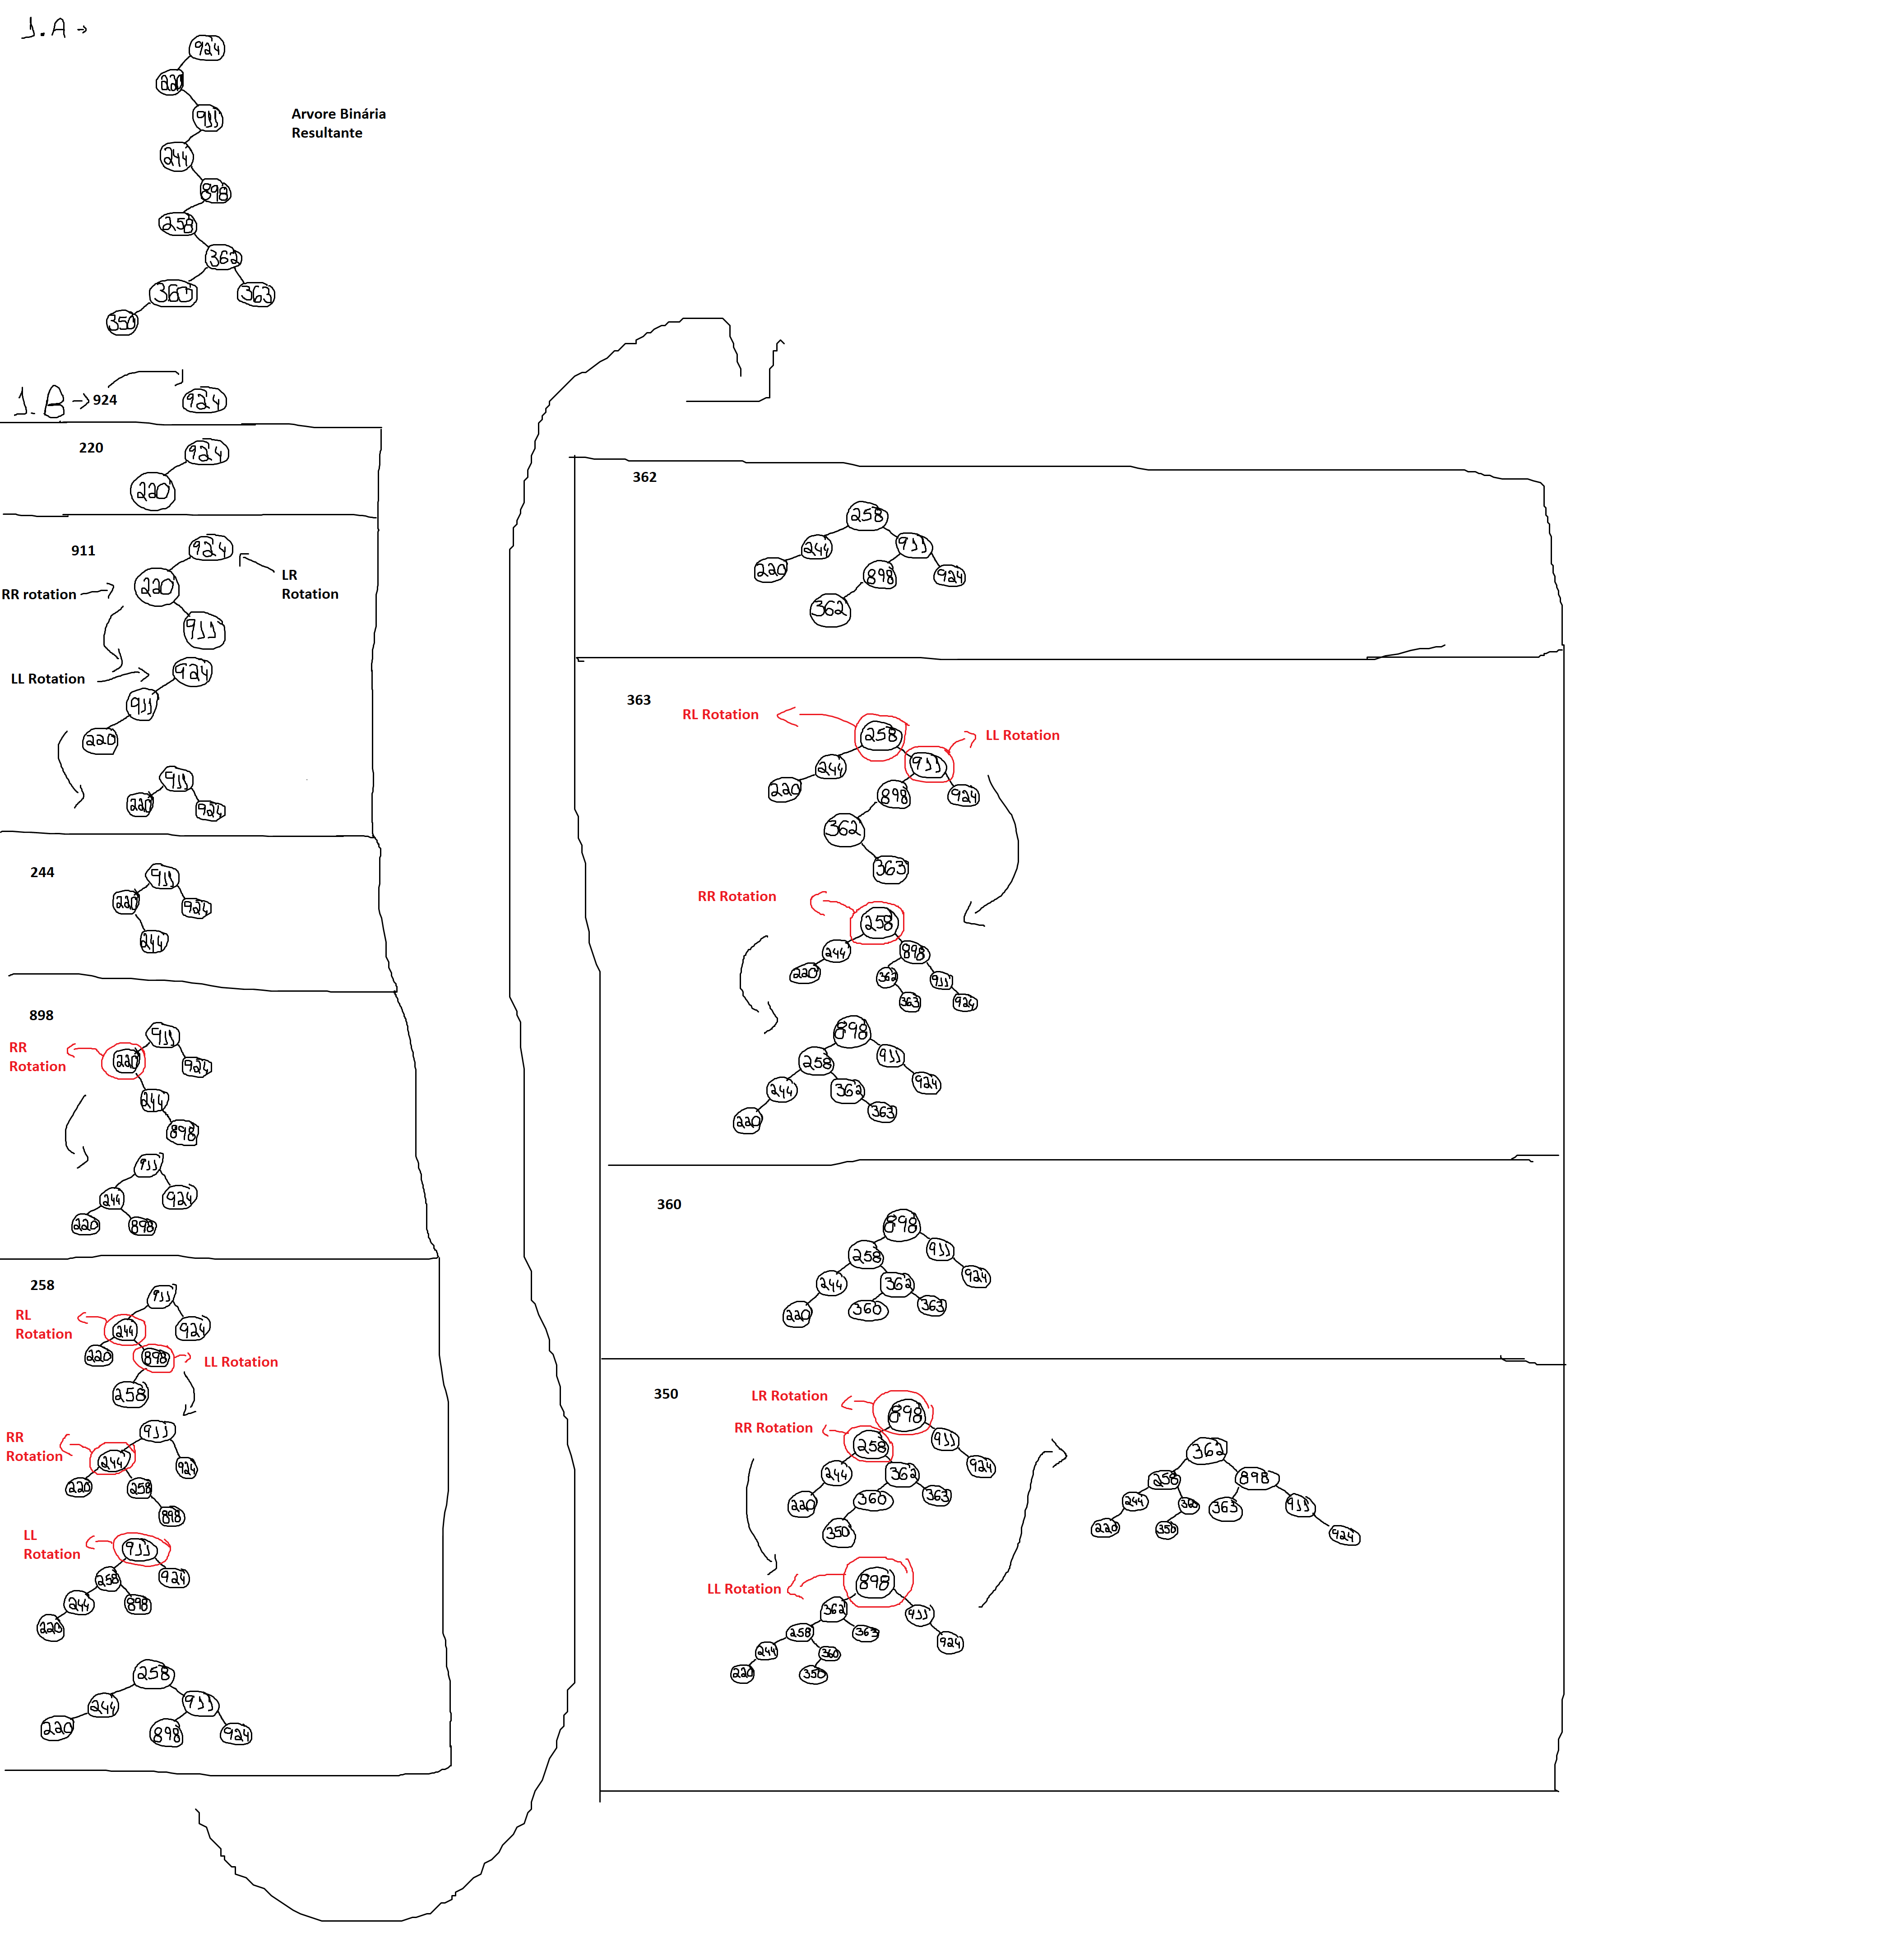 1.A →
924
220
911
Arvore Binária
Resultante
244
898
258
362
360 363
350
1.B → 924 924
220
924
220
911
924
LR
Rotation
RR rotation
220
911
924
LL Rotation
911
220
911
220 924
244
911
220 924
244
898
911
RR
Rotation
220 924
244
898
911
244 924
220 898
258
911
RL
Rotation
244 924
220 898
LL Rotation
258
911
RR
Rotation
244 924
220 258
898
LL
Rotation
911
258 924
244 898
220
258
244 911
220 898 924
362
258
244 911
220 898 924
362
363
RL Rotation
258
LL Rotation
244 911
220 898 924
362
363
RR Rotation
258
244 898
220 362 911
363 924
898
258 911
244 362 924
220 363
360
898
258 911
244 362 924
220 360 363
350
LR Rotation
898
RR Rotation
258 911
244 362 924
220 360 363
350
LL Rotation
898
362 911
258 363 924
244 360
220 350
362
258 898
244 360 363 911
220 350 924